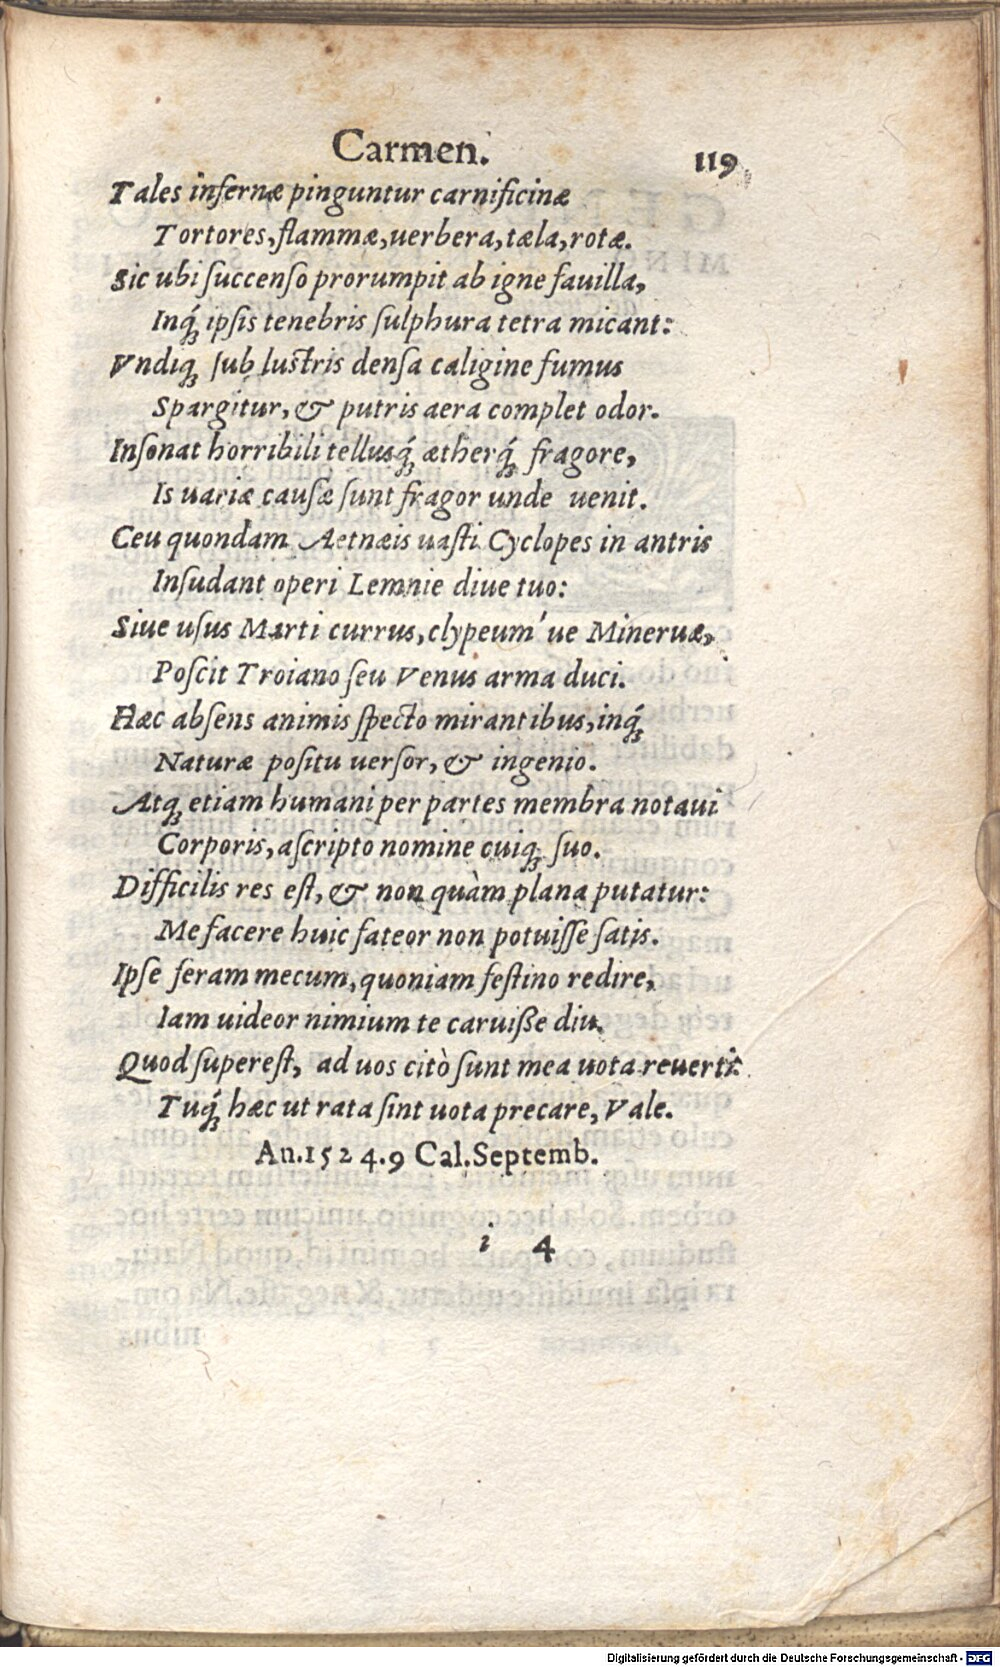 Carmen. 119
Tales infernæ pinguntur carnificinæ
Tortores, flammæ, uerbera, tæla, rotæ.
Sic ubi ſuccenſo prorumpit ab igne fauilla,
Inq́ꝫ ipſis tenebris ſulphura tetra micant:
Vndiqꝫ ſub luſtris denſa caligine fumus
Spargitur, & putris aera complet odor.
Inſonat horribili tellusq́ꝫ ætherq́ꝫ fragore,
Is uariæ cauſæ ſunt fragor unde uenit.
Ceu quondam Aetnæis uaſti Cyclopes in antris
Inſudant operi Lemnie diue tuo:
Siue uſus Marti currus, clypeum'ue Mineruæ,
Poſcit Troiano ſeu Venus arma duci.
Hæc abſens animis ſpecto mirantibus, inq́ꝫ
Naturæ poſitu uerſor, & ingenio.
Atqꝫ etiam humani per partes membra notaui
Corporis, aſcripto nomine cuiqꝫ ſuo.
Difficilis res eſt, & non quàm plana putatur:
Me facere huic fateor non potuiſſe ſatis.
Ipſe feram mecum, quoniam feſtino redire,
Iam uideor nimium te caruiſſe diu.
Quod ſupereſt, ad uos citò ſunt mea uota reuerti:
Tuq́ꝫ hæc ut rata ſint uota precare, Vale.
An. 1524. 9 Cal. Septemb.
i 4
Digitalisierung gefördert durch die Deutsche Forschungsgemeinschaft - DFG